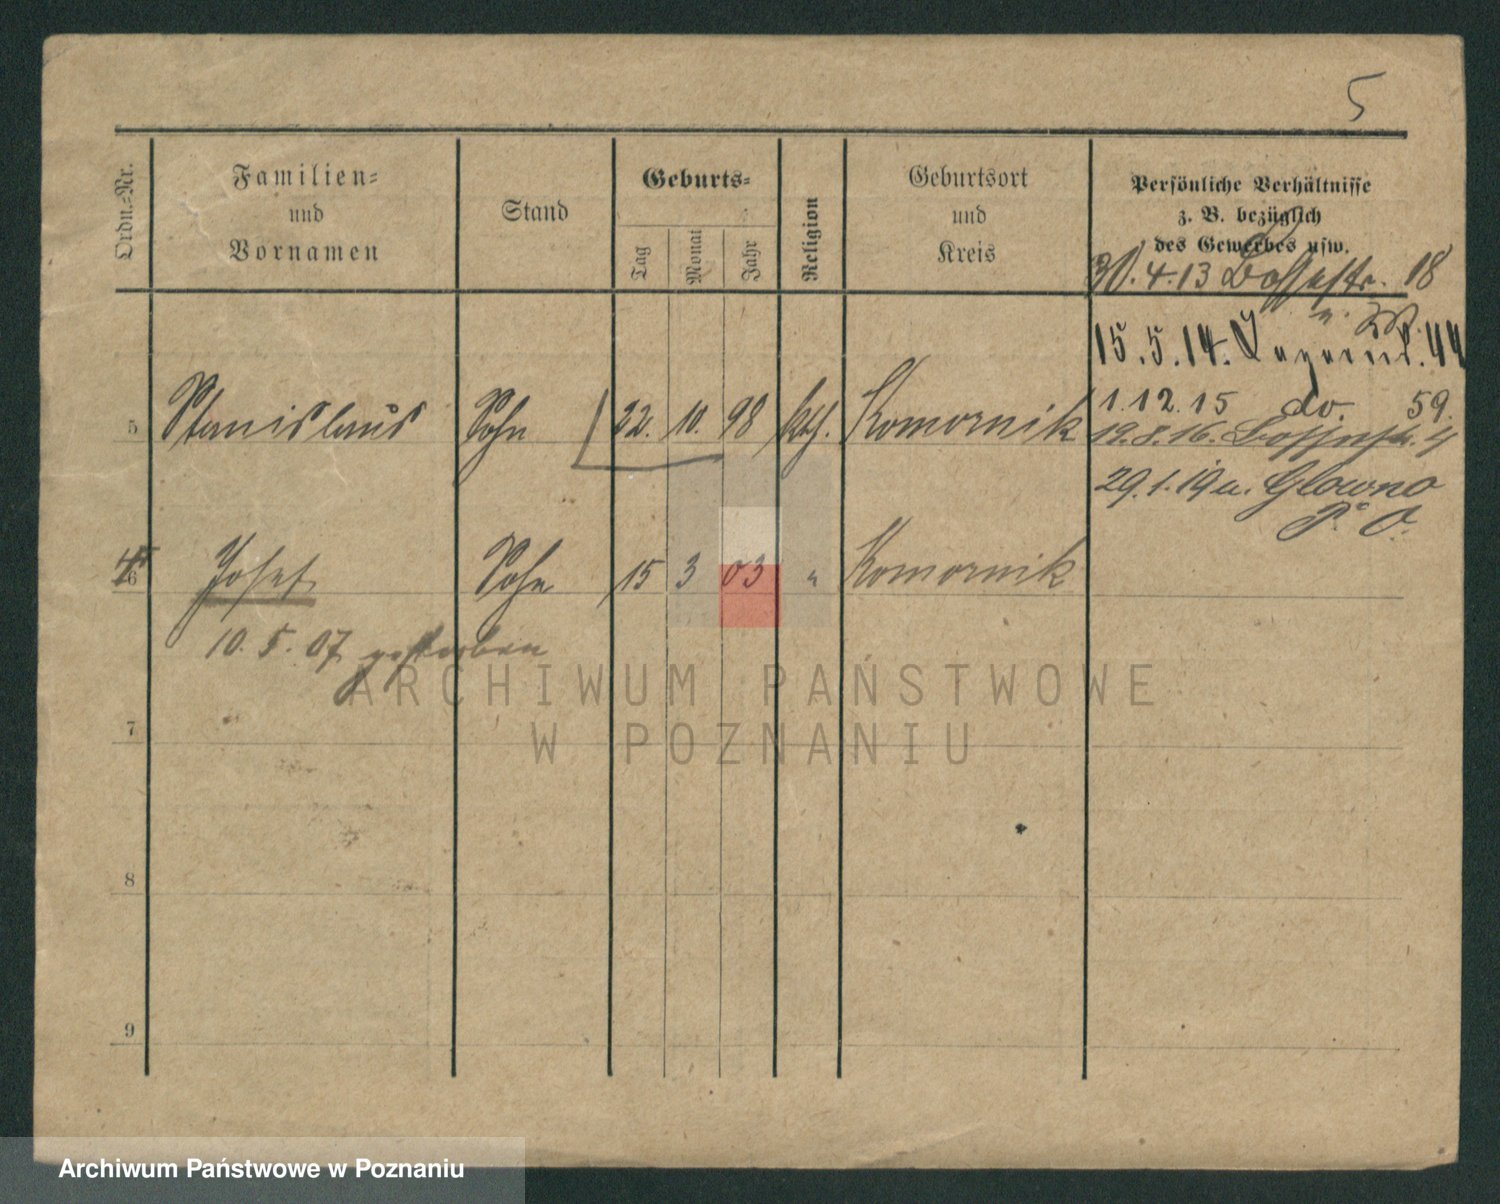 5
Ordn.-Nr.
Familien-
und
Vornamen
Stand
Geburts-
Tag
Monat
Jahr
Religion
Geburtsort
und
Kreis
Persönliche Verhältnisse
z. B. bezüglich
des Gewerbes usw.
30.4.13 18
15.5.14. 44
5 Stanislaus Sohn 22. 10. 98 kth. Komornik 1.12.15 do. 59.
19.8.16. 4
29.1.19 n. Glowno
P. O.
6 Josef Sohn 15 3 03 " Komornik
10.5.07 gestorben
ARCHIWUM PAŃSTWOWE
W POZNANIU
7
8
9
Archiwum Państwowe w Poznaniu